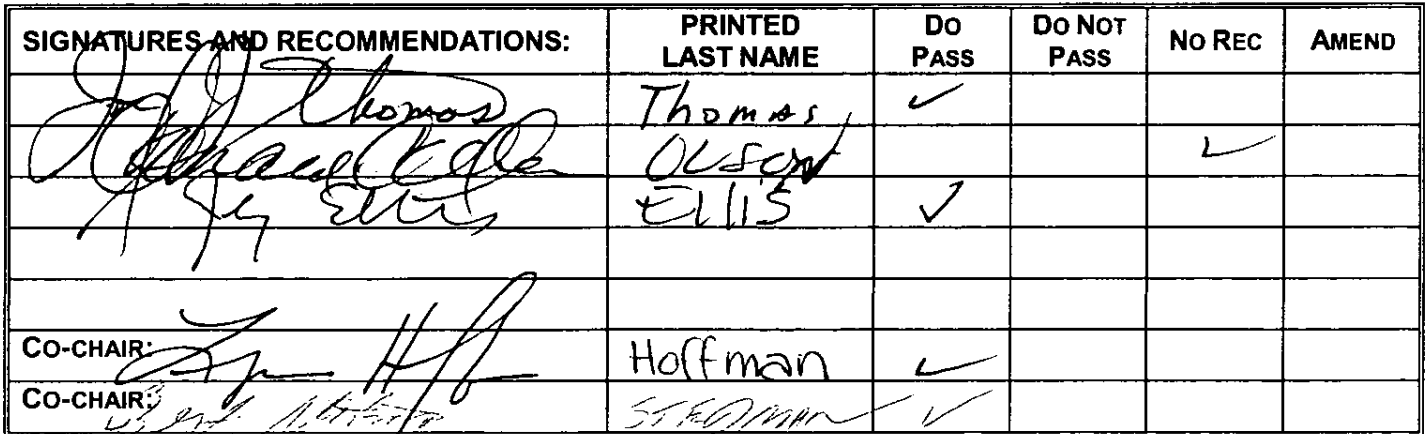 SIGNATURES AND RECOMMENDATIONS: PRINTED LAST NAME DO PASS DO NOT PASS NO REC AMEND
Thomas Thomas ✓
OLSON ✓
Ellis Ellis ✓
CO-CHAIR: Hoffman ✓
CO-CHAIR: STEDMAN ✓